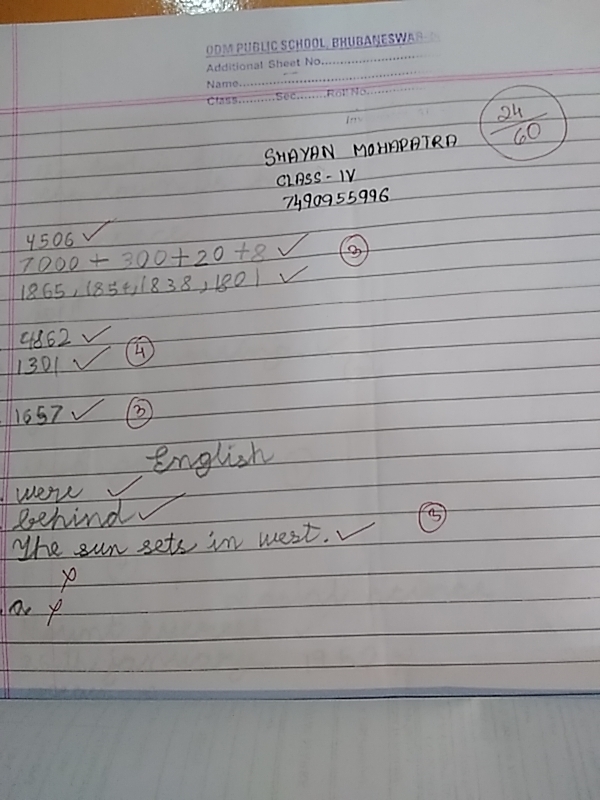 ODM PUBLIC SCHOOL, BHUBANESWAR
Additional Sheet No.
Name
Class..........Sec........Roll No.
24/60
SHAYAN MOHAPATRA
CLASS - IV
7490955996
4506 ✓
7000 + 300 + 20 + 8 ✓ 3
1865, 1854, 1838, 1801 ✓
4862 ✓
1301 ✓ 4
1657 ✓ 3
English
were ✓
behind ✓
The sun sets in west. ✓ 3
x
a x